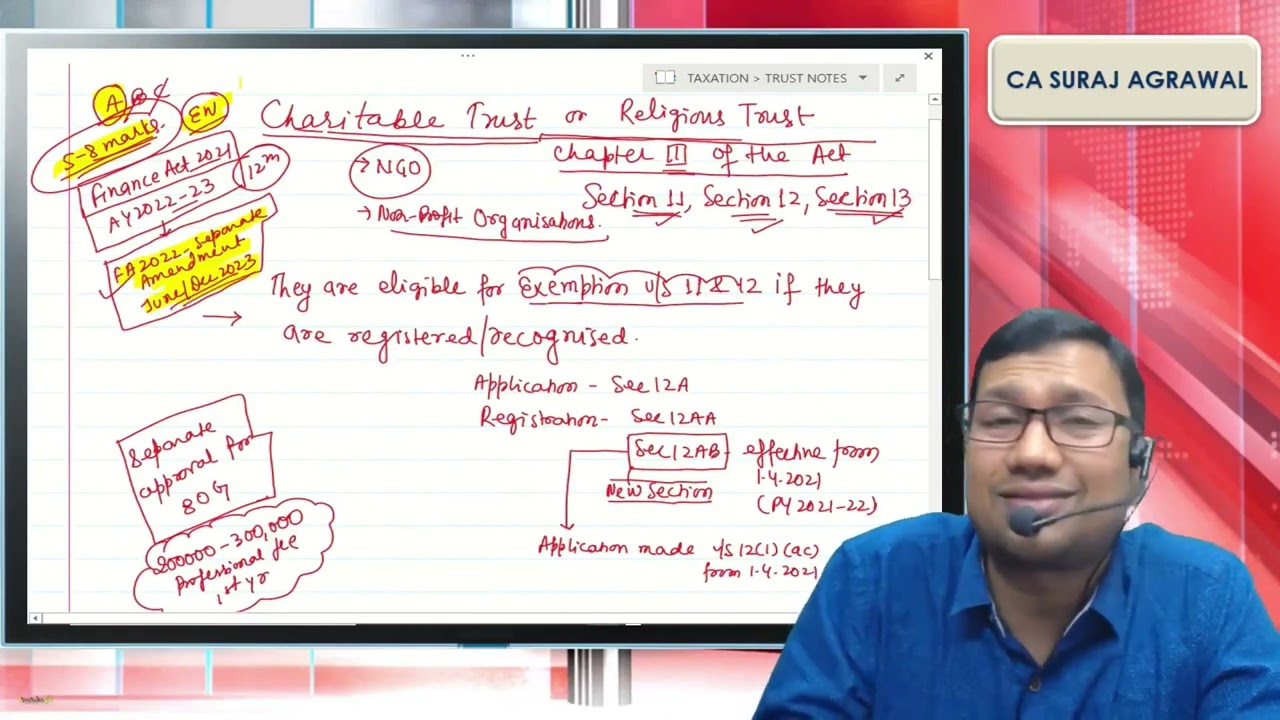 TAXATION > TRUST NOTES
CA SURAJ AGRAWAL
A B C
EW
5-8 marks
Finance Act 2021
AY 2022-23
12m
FA 2022 - Separate
Amendment
June/Dec 2023
Charitable Trust or Religious Trust
→ NGO
Chapter III of the Act
Section 11, Section 12, Section 13
→ Non-Profit Organisations.
They are eligible for Exemption u/s 11 & 12 if they
are registered/recognised.
Application - Sec 12A
Registration - Sec 12AA
Sec 12AB effective from
1.4.2021
New Section
(PY 2021-22)
Application made u/s 12(1)(ac)
from 1.4.2021
Separate
approval for
80G
200000-300,000
Professional fee
1st yr